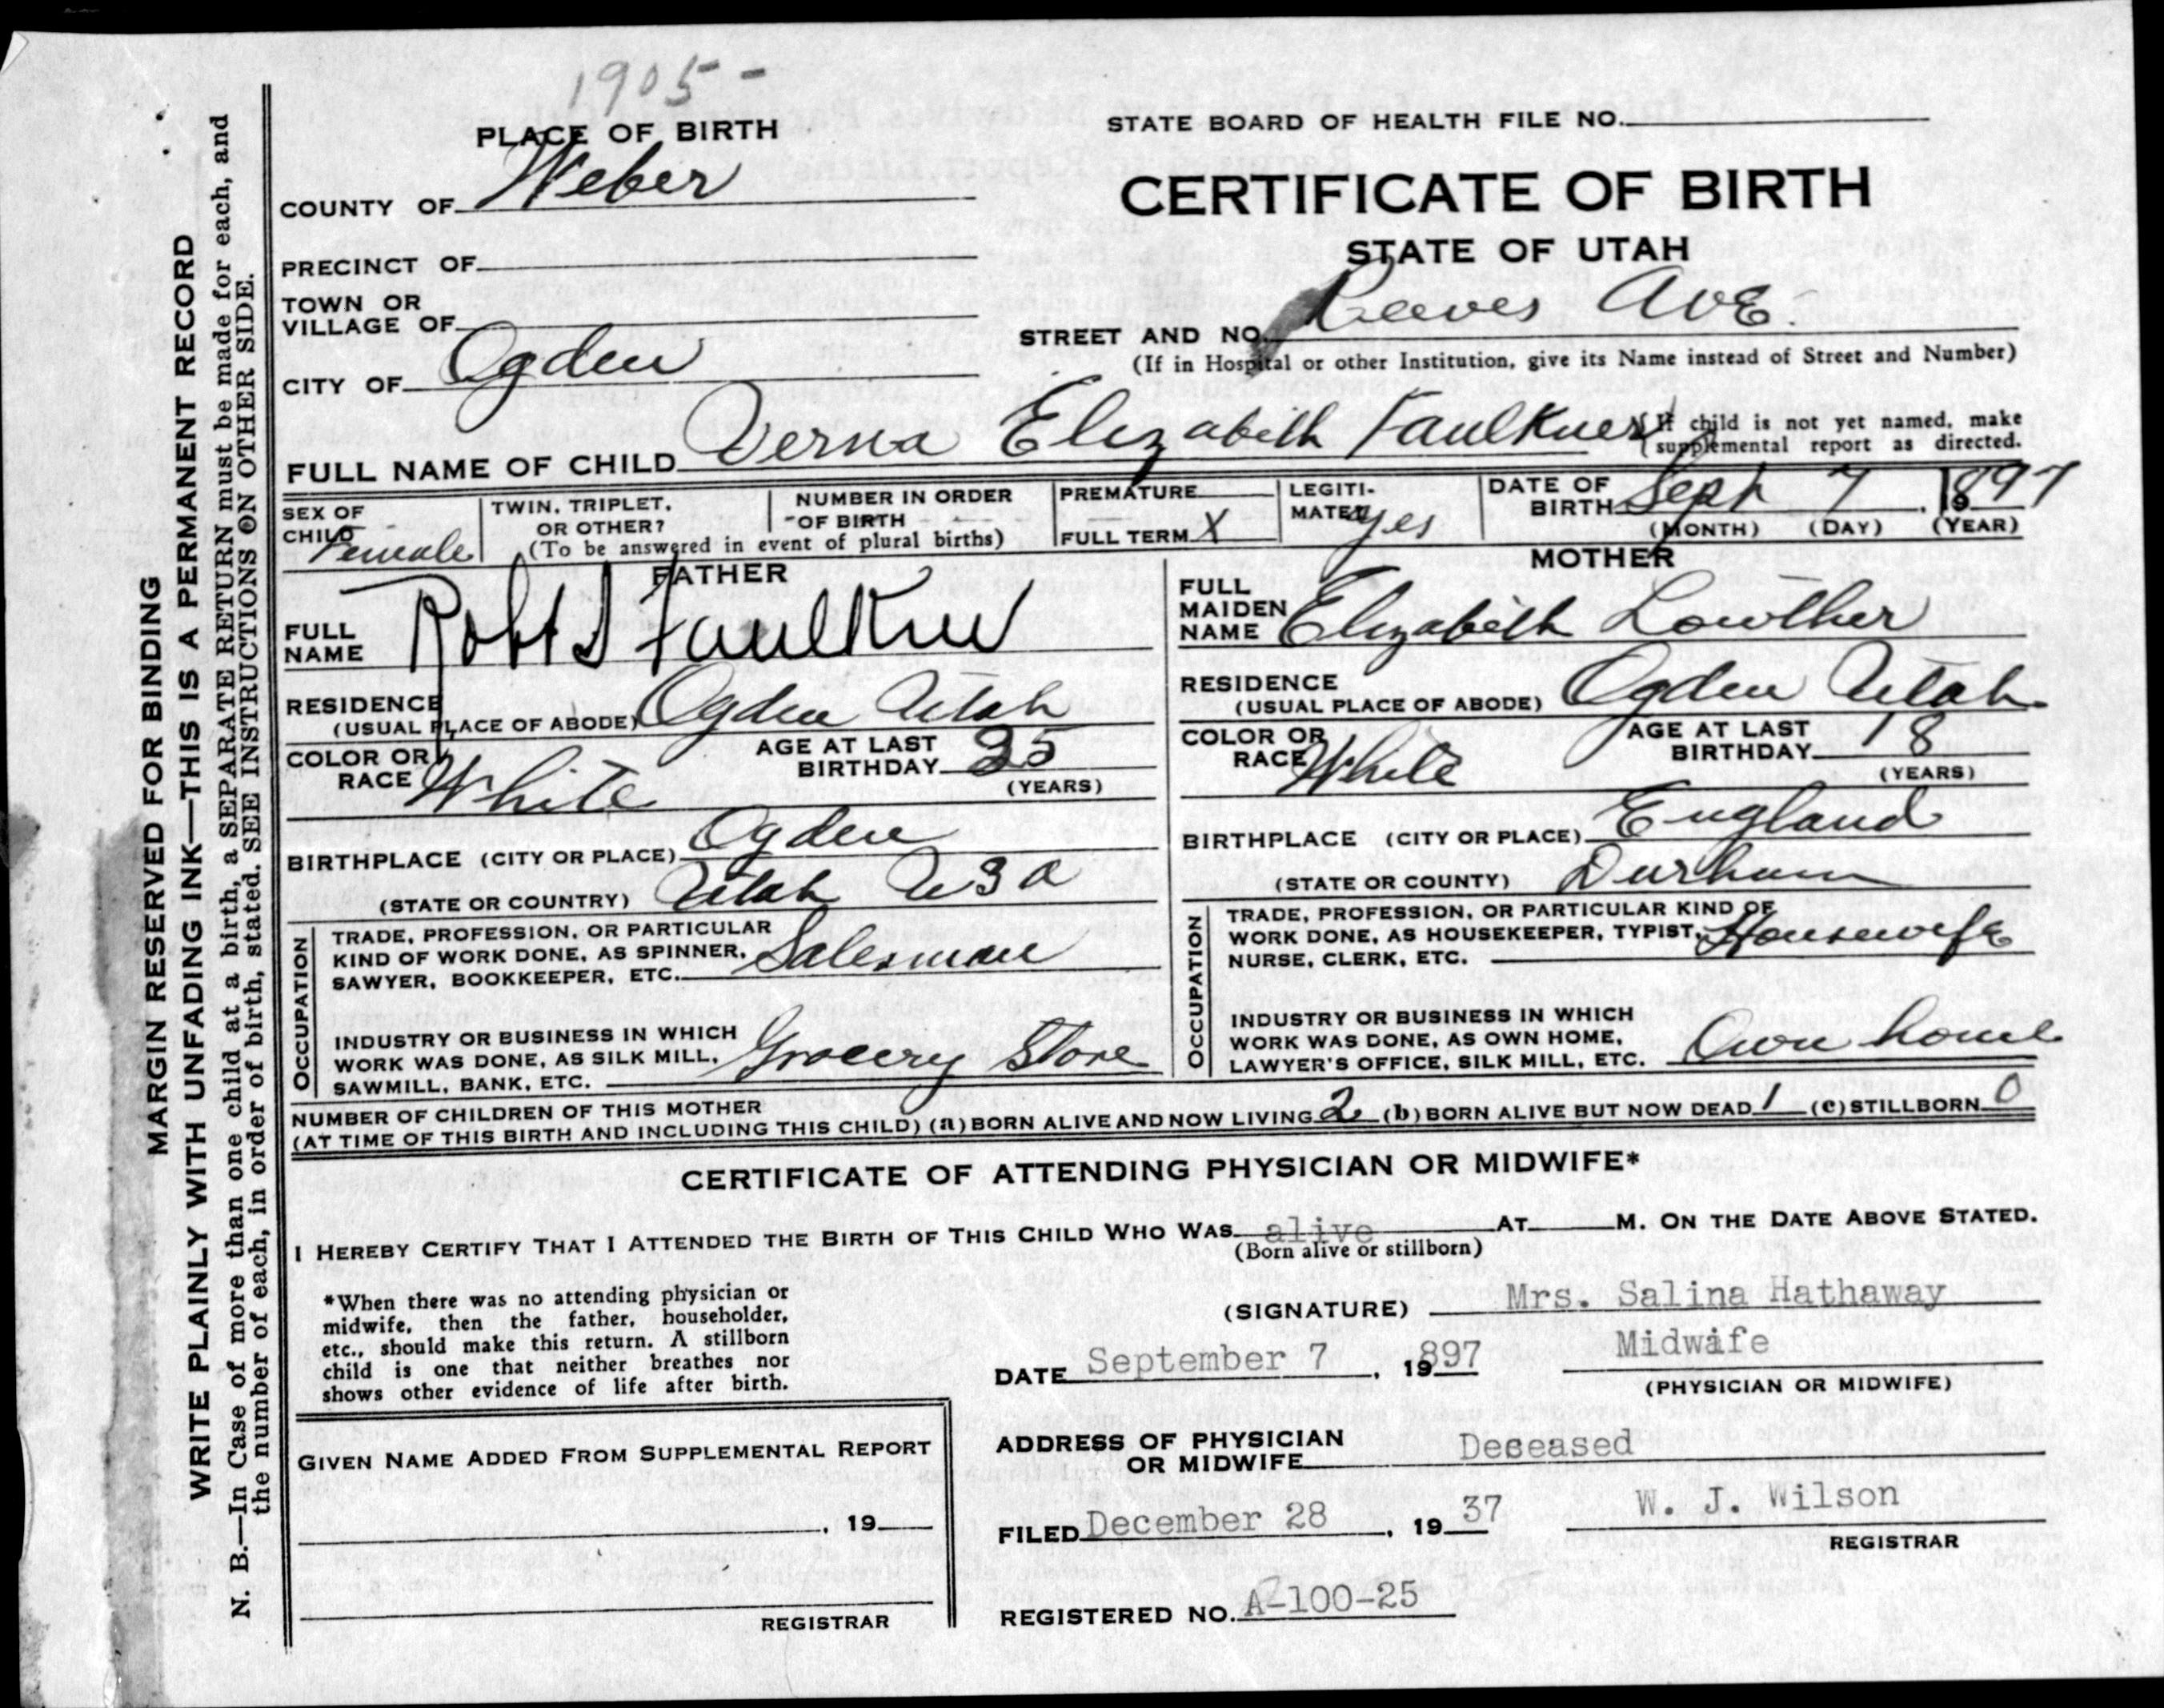 1905-
PLACE OF BIRTH
STATE BOARD OF HEALTH FILE NO.
COUNTY OF Weber
CERTIFICATE OF BIRTH
STATE OF UTAH
PRECINCT OF
TOWN OR
VILLAGE OF
STREET AND NO. Reeves Ave.
(If in Hospital or other Institution, give its Name instead of Street and Number)
CITY OF Ogden
FULL NAME OF CHILD Verna Elizabeth Faulkner
(If child is not yet named, make
supplemental report as directed.
SEX OF
CHILD Female
TWIN, TRIPLET,
OR OTHER?
NUMBER IN ORDER
OF BIRTH
(To be answered in event of plural births)
PREMATURE
FULL TERM X
LEGITI-
MATE? yes
DATE OF
BIRTH Sept 7, 1897
(MONTH) (DAY) (YEAR)
FATHER
FULL
NAME Robt S Faulkner
RESIDENCE
(USUAL PLACE OF ABODE) Ogden Utah
COLOR OR
RACE White
AGE AT LAST
BIRTHDAY 25
(YEARS)
BIRTHPLACE (CITY OR PLACE) Ogden
(STATE OR COUNTRY) Utah USA
OCCUPATION
TRADE, PROFESSION, OR PARTICULAR
KIND OF WORK DONE, AS SPINNER,
SAWYER, BOOKKEEPER, ETC. Salesman
INDUSTRY OR BUSINESS IN WHICH
WORK WAS DONE, AS SILK MILL,
SAWMILL, BANK, ETC. Grocery Store
MOTHER
FULL
MAIDEN
NAME Elizabeth Lowther
RESIDENCE
(USUAL PLACE OF ABODE) Ogden Utah
COLOR OR
RACE White
AGE AT LAST
BIRTHDAY 18
(YEARS)
BIRTHPLACE (CITY OR PLACE) England
(STATE OR COUNTY) Durham
OCCUPATION
TRADE, PROFESSION, OR PARTICULAR KIND OF
WORK DONE, AS HOUSEKEEPER, TYPIST,
NURSE, CLERK, ETC. Housewife
INDUSTRY OR BUSINESS IN WHICH
WORK WAS DONE, AS OWN HOME,
LAWYER'S OFFICE, SILK MILL, ETC. Own home
NUMBER OF CHILDREN OF THIS MOTHER
(AT TIME OF THIS BIRTH AND INCLUDING THIS CHILD) (a) BORN ALIVE AND NOW LIVING 2 (b) BORN ALIVE BUT NOW DEAD 1 (c) STILLBORN 0
CERTIFICATE OF ATTENDING PHYSICIAN OR MIDWIFE*
I HEREBY CERTIFY THAT I ATTENDED THE BIRTH OF THIS CHILD WHO WAS alive AT M. ON THE DATE ABOVE STATED.
(Born alive or stillborn)
*When there was no attending physician or
midwife, then the father, householder,
etc., should make this return. A stillborn
child is one that neither breathes nor
shows other evidence of life after birth.
(SIGNATURE) Mrs. Salina Hathaway
DATE September 7, 19 897 Midwife
(PHYSICIAN OR MIDWIFE)
ADDRESS OF PHYSICIAN
OR MIDWIFE Deceased
FILED December 28, 19 37 W. J. Wilson
REGISTRAR
REGISTERED NO. A-100-25
GIVEN NAME ADDED FROM SUPPLEMENTAL REPORT
, 19
REGISTRAR
MARGIN RESERVED FOR BINDING
WRITE PLAINLY WITH UNFADING INK—THIS IS A PERMANENT RECORD
N. B.—In Case of more than one child at a birth, a SEPARATE RETURN must be made for each, and
the number of each, in order of birth, stated. SEE INSTRUCTIONS ON OTHER SIDE.